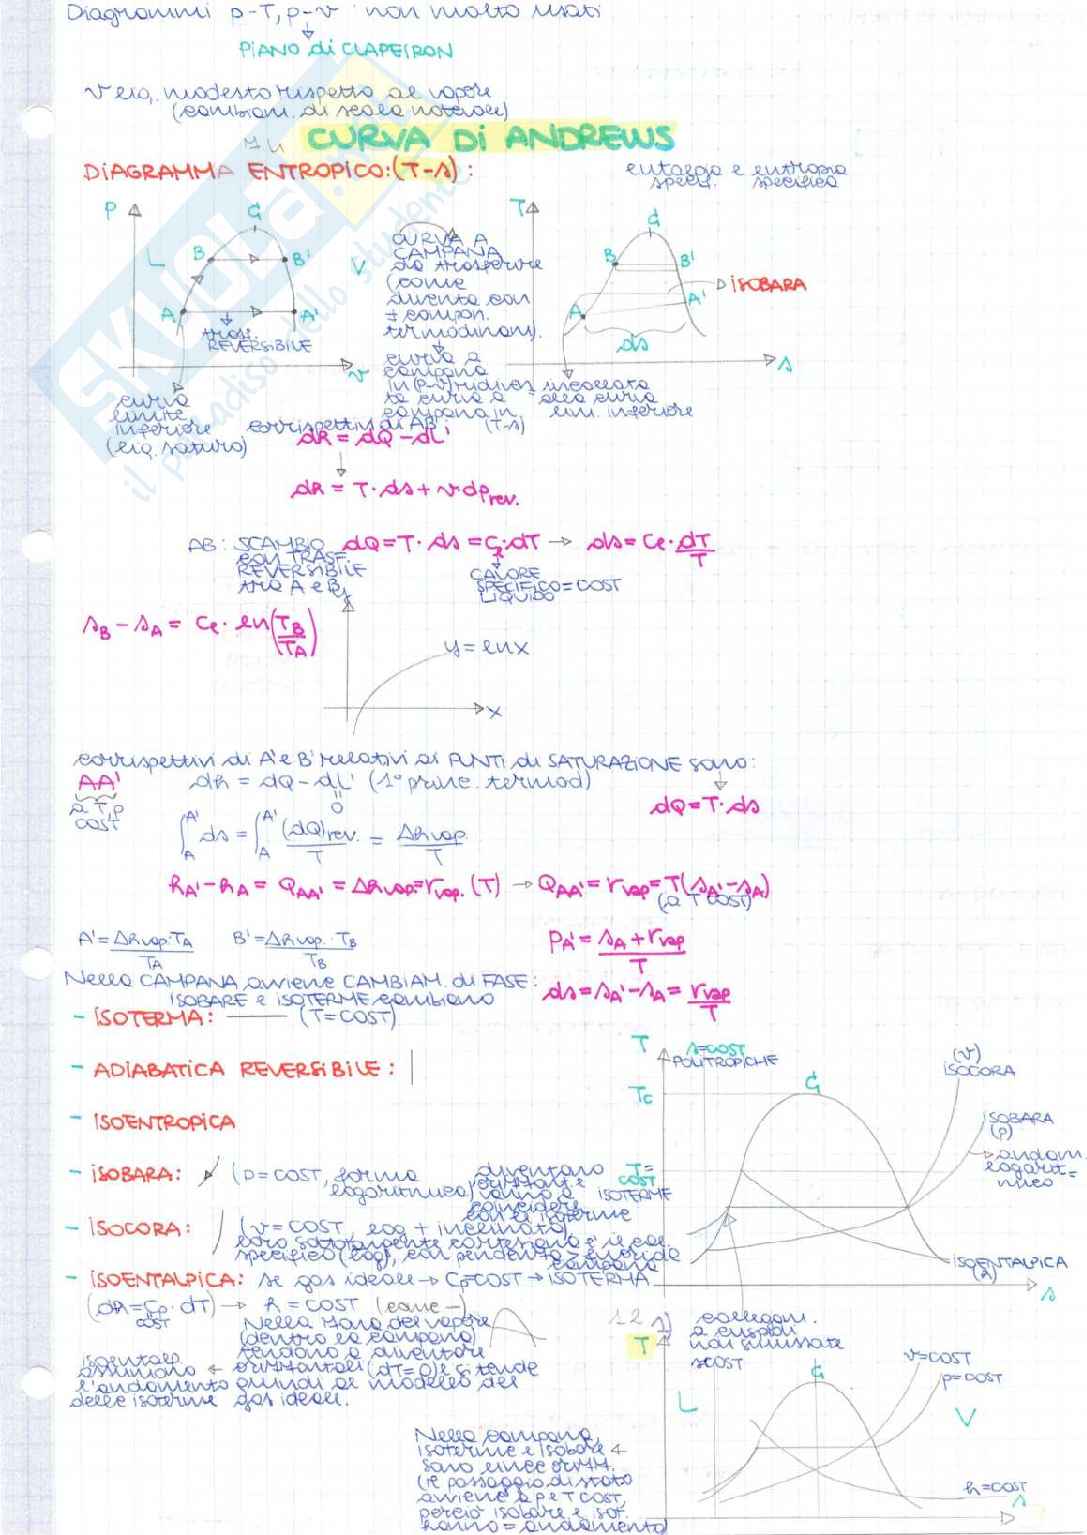 Diagrammi p-T, p-v non molto usati
PIANO di CLAPEIRON
v liq. modesto rispetto al vapore
(cambiam. di scala notevole)
11
CURVA Di ANDREWS
DiAGRAMMA ENTROPICO: (T-s) :
entalpia e entropia
specif. specifica
P
G
B
B'
L
V
A
A'
trasf.
REVERSIBILE
v
curva
limite
inferiore
(liq. saturo)
SKUOLA.net
il paradiso dello studente
CURVA A
CAMPANA
da trasferire
(come
diventa con
± compon.
termodinam).
curva a
campana
in (p-v) ridiven
ta curva a
campana in
(T-s)
T
G
B
B'
ISOBARA
A'
A
ds
s
incollata
alla curva
lim. inferiore
corrispettivi di AB :
dh = dQ - dL'
dh = T · ds + v dp rev.
AB : SCAMBIO
CON TRASF.
REVERSIBILE
tra A e B
dQ = T · ds = Cl · dT → ds = Cl · dT/T
CALORE
SPECIFICO = COST
LIQUIDO
sB - sA = Cl · ln (TB/TA)
y = lnx
x
corrispettivi di A' e B' relativi ai PUNTI di SATURAZIONE sono:
AA'
a T, p
COST
dh = dQ - dL' (1° princ. termod)
0
dQ = T · ds
∫ A A' ds = ∫ A A' (dQ)rev./T = Δhvap/T
hA' - hA = QAA' = Δhvap = rvap. (T) → QAA' = rvap = T (sA' - sA)
(a T COST)
A' = Δhvap · TA/TA B' = Δhvap · TB/TB
PA' = sA + rvap/T
Nella CAMPANA avviene CAMBIAM. di FASE :
ISOBARE e ISOTERME cambiano
ds = sA' - sA = rvap/T
- ISOTERMA: —— (T = COST)
- ADIABATICA REVERSIBILE : |
- ISOENTROPICA
- ISOBARA: (p = COST, forma
logaritmica)
diventano
orizzont. e
vanno a
coincidere
con le isoterme
- ISOCORA: (v = COST, log + inclinata)
loro sottotangente cartesiana = il cal.
specifico (log), con pendenza >
campana
- ISOENTALPICA: se gas ideale → Cp = COST → ISOTERMA
(dh = Cp · dT) → h = COST (come —)
COST
Nella zona del vapore
(dentro la campana)
tendono a diventare
orizzontali (dT = 0) e si tende
quindi al modello dei
gas ideali.
isoentalp.
assumono
l'andamento
delle isoterme
T
s = COST
POLITROPICHE
Tc
G
(v)
ISOCORA
ISOBARA
(p)
andam.
logarit-
mico
T =
COST
ISOTERME
ISOENTALPICA
(h)
s
12
collegam.
a cuspidi
T
s COST
G
v = COST
p = COST
L
V
h = COST
s
Nella campana,
isoterme e isobare
sono linee orizz.
(il passaggio di stato
avviene a p e T COST,
perciò isobare e isot.
hanno = andamento)